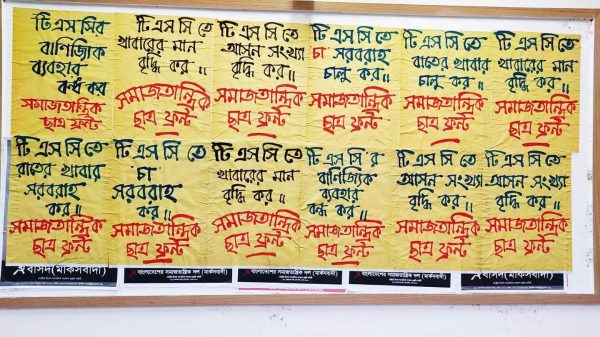 টি এস সির
বাণিজ্যিক
ব্যবহার
বন্ধ কর
সমাজতান্ত্রিক
ছাত্র ফ্রন্ট
টি এস সি তে
খাবারের মান
বৃদ্ধি কর ॥
সমাজতান্ত্রিক
ছাত্র ফ্রন্ট
টি এস সি তে
আসন সংখ্যা
বৃদ্ধি কর ॥
সমাজতান্ত্রিক
ছাত্র ফ্রন্ট
টি এস সি তে
চা সরবরাহ
চালু কর ॥
সমাজতান্ত্রিক
ছাত্র ফ্রন্ট
টি এস সি তে
রাতের খাবার
চালু কর ॥
সমাজতান্ত্রিক
ছাত্র ফ্রন্ট
টি এস সি তে
খাবারের মান
বৃদ্ধি কর ॥
সমাজতান্ত্রিক
ছাত্র ফ্রন্ট
টি এস সি তে
রাতের খাবার
সরবরাহ
কর ॥
সমাজতান্ত্রিক
ছাত্র ফ্রন্ট
টি এস সি তে
চা
সরবরাহ
কর ॥
সমাজতান্ত্রিক
ছাত্র ফ্রন্ট
টি এস সি তে
খাবারের মান
বৃদ্ধি কর ॥
সমাজতান্ত্রিক
ছাত্র ফ্রন্ট
টি এস সি র
বাণিজ্যিক
ব্যবহার
বন্ধ কর ॥
সমাজতান্ত্রিক
ছাত্র ফ্রন্ট
টি এস সি তে
আসন সংখ্যা
বৃদ্ধি কর ॥
সমাজতান্ত্রিক
ছাত্র ফ্রন্ট
টি এস সি তে
আসন সংখ্যা
বৃদ্ধি কর ॥
সমাজতান্ত্রিক
ছাত্র ফ্রন্ট
বাসদ(মার্কসবাদী)
বাংলাদেশের সমাজতান্ত্রিক দল (মার্কসবাদী)
বাংলাদেশের সমাজতান্ত্রিক দল (মার্কসবাদী)
বাসদ(মার্কসবাদী)